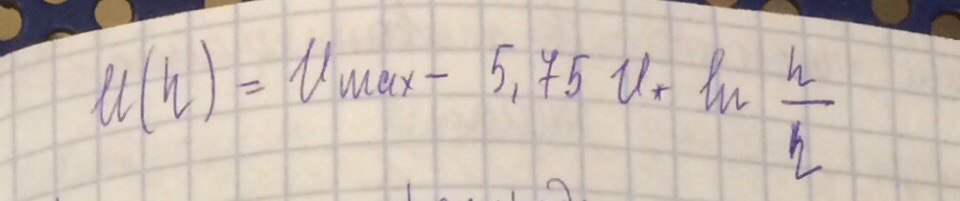 u(η) = Umax − 5,75 U* ln h/η